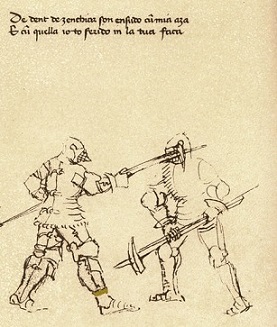 De dent de zenchiar son ensido cũ mia aza
E cũ quella io to ferido in la tua facia